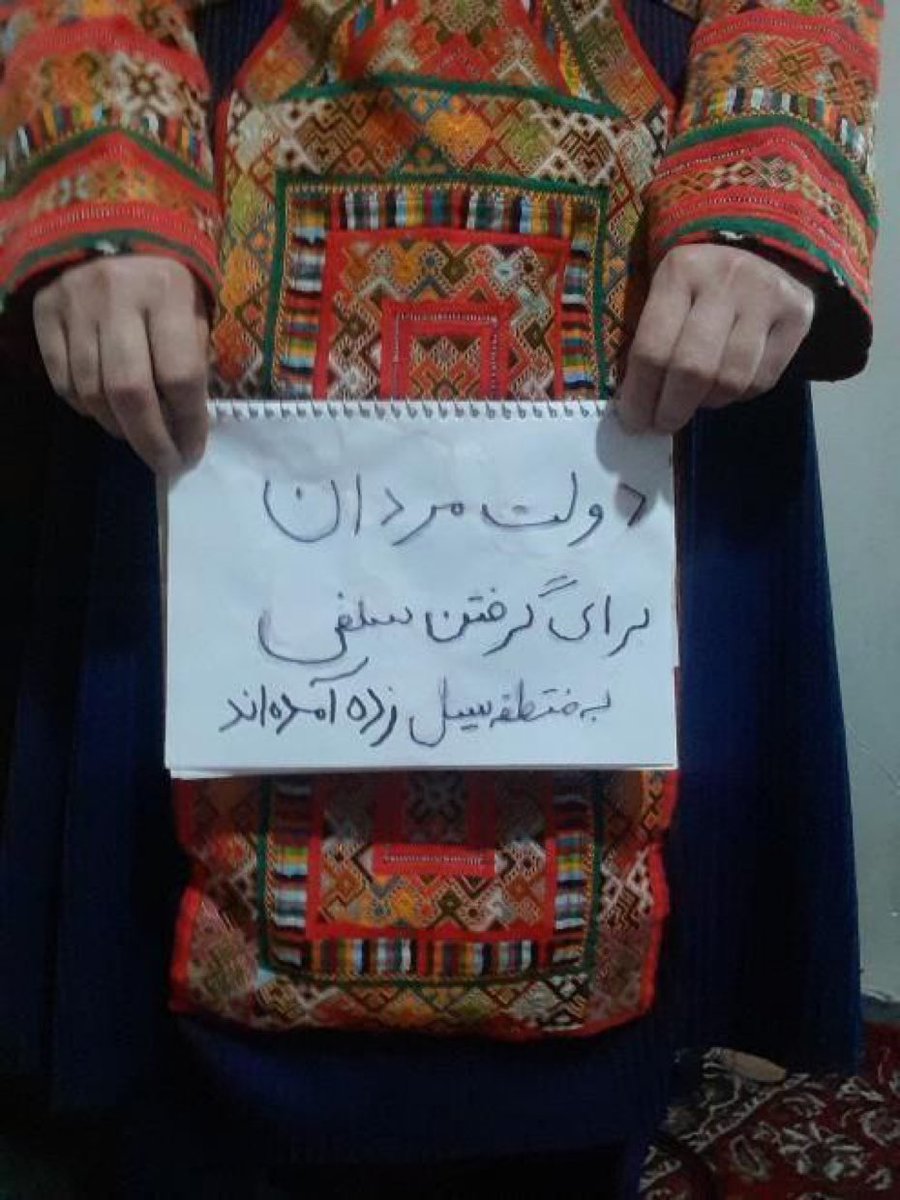 دولت مردان
برای گرفتن سلفی
به منطقه سیل زده آمده‌اند